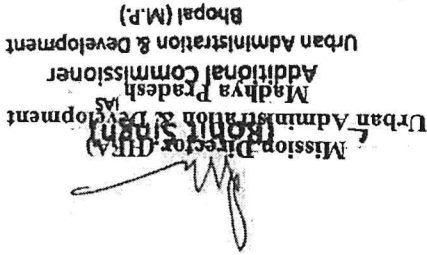 Mission Director (HFA)
(Rohit Singh)
Urban Administration & Development
IAS
Madhya Pradesh
Additional Commissioner
Urban Administration & Development
Bhopal (M.P.)